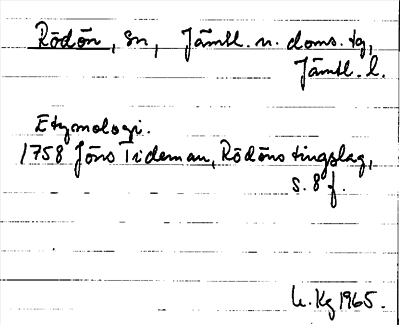 Rödön, sn, Jämtl. n. doms. tg,
Jämtl. l.
Etymologi.
1758 Jöns Tideman, Rödöns tingslag,
s. 8 f.
U. Kg 1965.